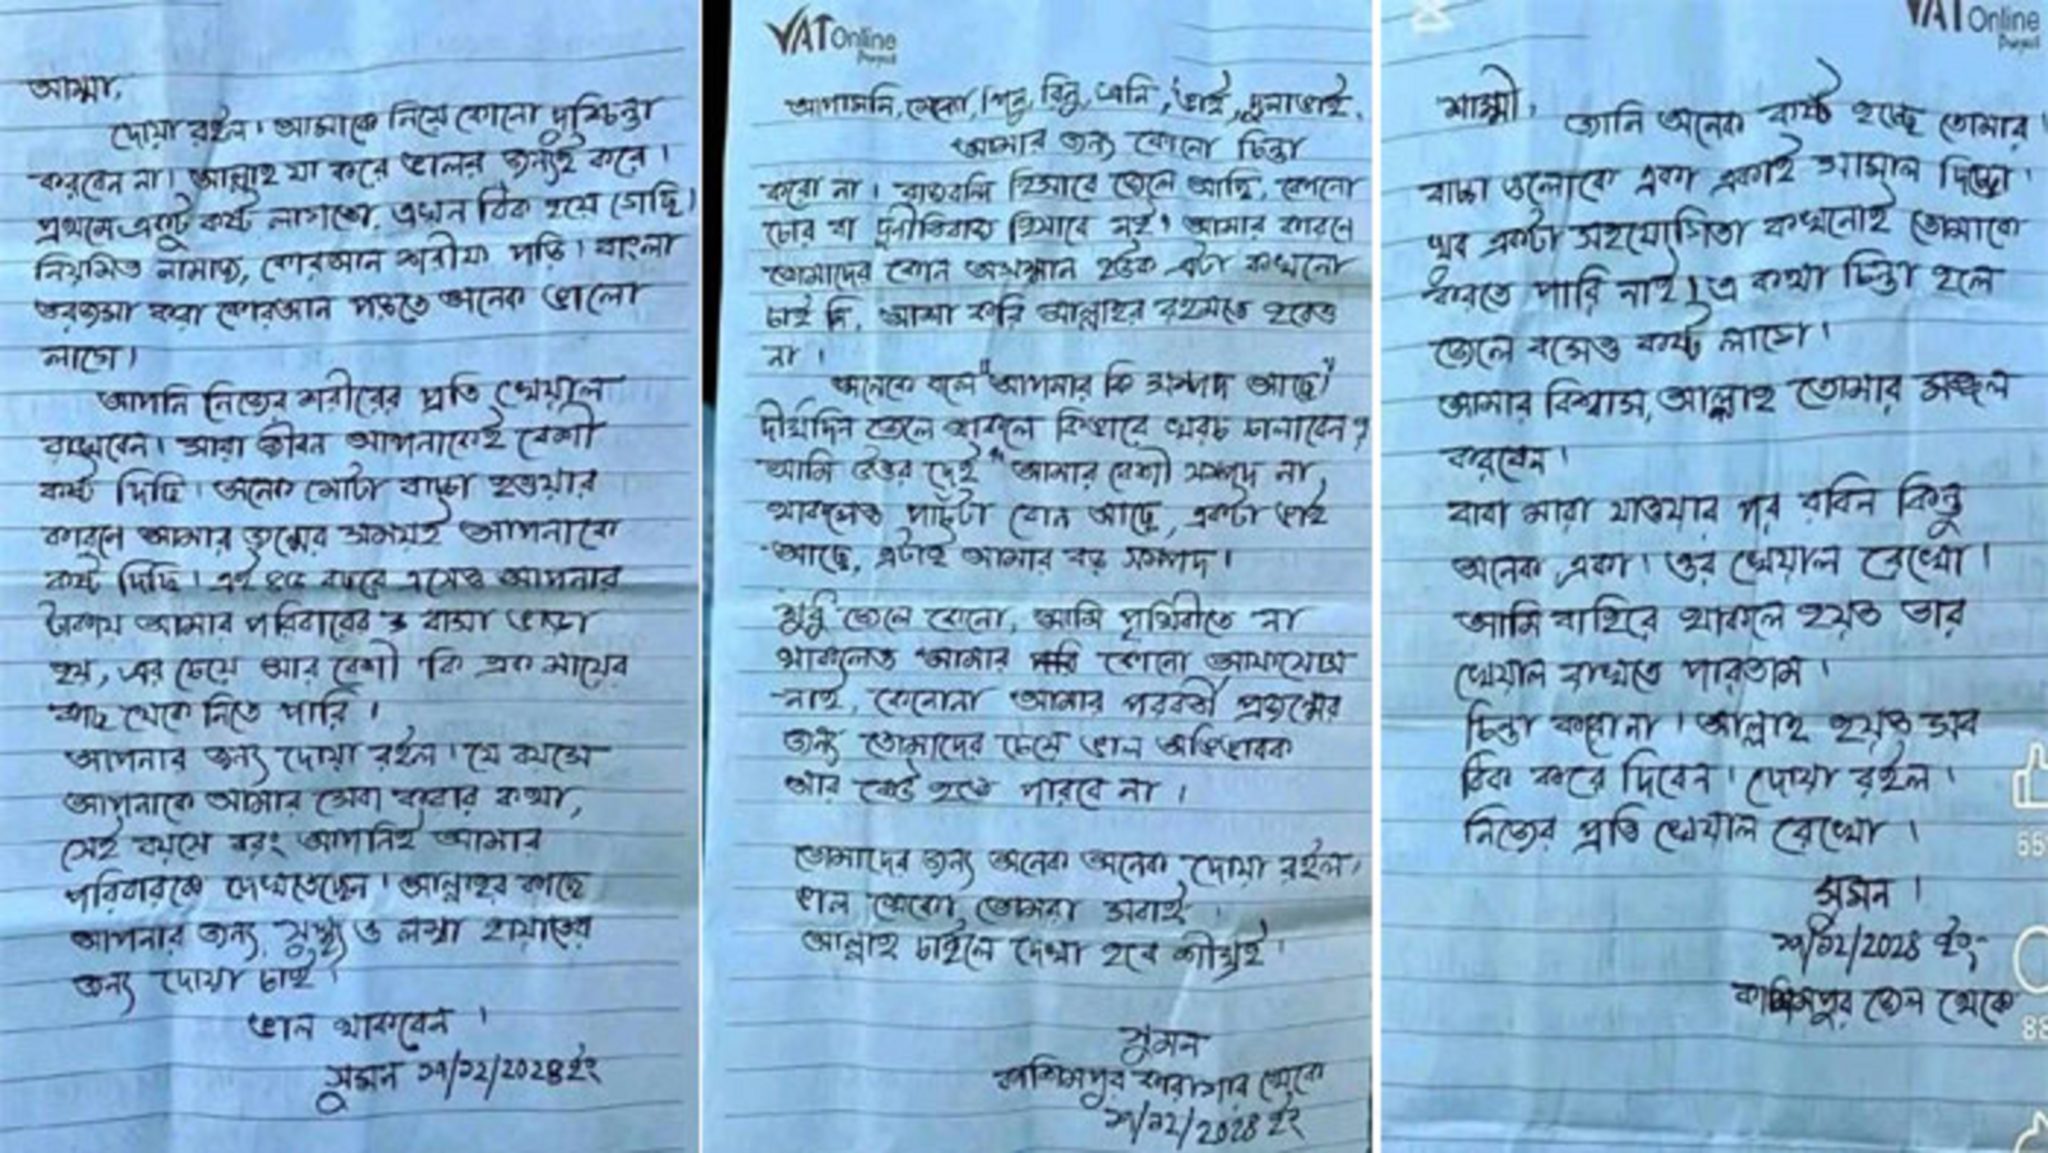 আম্মা,
দোয়া রইল। আমাকে নিয়ে কোনো দুশ্চিন্তা
করবেন না। আল্লাহ যা করে ভালর জন্যই করে।
প্রথমে একটু কষ্ট লাগতো, এখন ঠিক হয়ে গেছি।
নিয়মিত নামাজ, কোরআন শরীফ পড়ি। বাংলা
তরজমা করা কোরআন পড়তে অনেক ভালো
লাগে।
আপনি নিজের শরীরের প্রতি খেয়াল
রাখবেন। সারা জীবন আপনাকেই বেশী
কষ্ট দিছি। অনেক মোটা বাচ্চা হওয়ার
কারনে আমার জন্মের সময়ই আপনাকে
কষ্ট দিছি। এই বছরে এসেও আপনার
টাকায় আমার পরিবারের বাসা ভাড়া
হয়, এর চেয়ে আর বেশী কি এক মায়ের
কাছ থেকে নিতে পারি।
আপনার জন্য দোয়া রইল। যে বয়সে
আপনাকে আমার সেবা করার কথা,
সেই বয়সে বরং আপনিই আমার
পরিবারকে দেখতেছেন। আল্লাহর কাছে
আপনার জন্য সুস্থ্য ও লম্বা হায়াতের
জন্য দোয়া চাই।
ভাল থাকবেন।
সুমন ১৭/১২/2024 ইং
VAT Online
Project
আপামনি, সেতো, রিনু, এনি, ভাই, দুলাভাই,
আমার জন্য কোনো চিন্তা
করো না। রাজবন্দি হিসাবে জেলে আছি, কোনো
চোর বা দুর্নীতিবাজ হিসাবে নই। আমার কারনে
তোমাদের কোন অসম্মান হউক এটা কখনো
চাই নি, আশা করি আল্লাহর রহমতে হবেও
না।
অনেকে বলে "আপনার কি সম্পদ আছে?
দীর্ঘদিন জেলে থাকলে কিভাবে খরচ চালাবেন?
আমি উত্তর দেই" আমার বেশী সম্পদ না
থাকলেও পাচঁটা বোন আছে, একটা ভাই
আছে, এটাই আমার বড় সম্পদ।
শুধু জেলে কেনো, আমি পৃথিবীতে না
থাকলেও আমার কোনো আফসোস
নাই, কেনোনা আমার পরবর্তী প্রজন্মের
জন্য তোমাদের চেয়ে ভাল অভিভাবক
আর কেউ হতে পারবে না।
তোমাদের জন্য অনেক অনেক দোয়া রইল,
ভাল থেকো তোমরা সবাই।
আল্লাহ চাইলে দেখা হবে শীঘ্রই।
সুমন
কাশিমপুর কারাগার থেকে
১৭/১২/2024 ইং
VAT Online
Project
শাম্মী,
জানি অনেক কষ্ট হচ্ছে তোমার।
বাচ্চা গুলোকে একা একাই সামাল দিচ্ছো।
খুব একটা সহযোগিতা কখনোই তোমাকে
করতে পারি নাই। এ কথা চিন্তা হলে
জেলে বসেও কষ্ট লাগে।
আমার বিশ্বাস, আল্লাহ তোমার মঙ্গল
করবেন।
বাবা মারা যাওয়ার পর রবিন কিন্তু
অনেক একা। ওর খেয়াল রেখো।
আমি বাহিরে থাকলে হয়ত তার
খেয়াল রাখতে পারতাম।
চিন্তা করোনা। আল্লাহ হয়ত সব
ঠিক করে দিবেন। দোয়া রইল।
নিজের প্রতি খেয়াল রেখো।
সুমন।
১৭/১২/2024 ইং
কাশিমপুর জেল থেকে